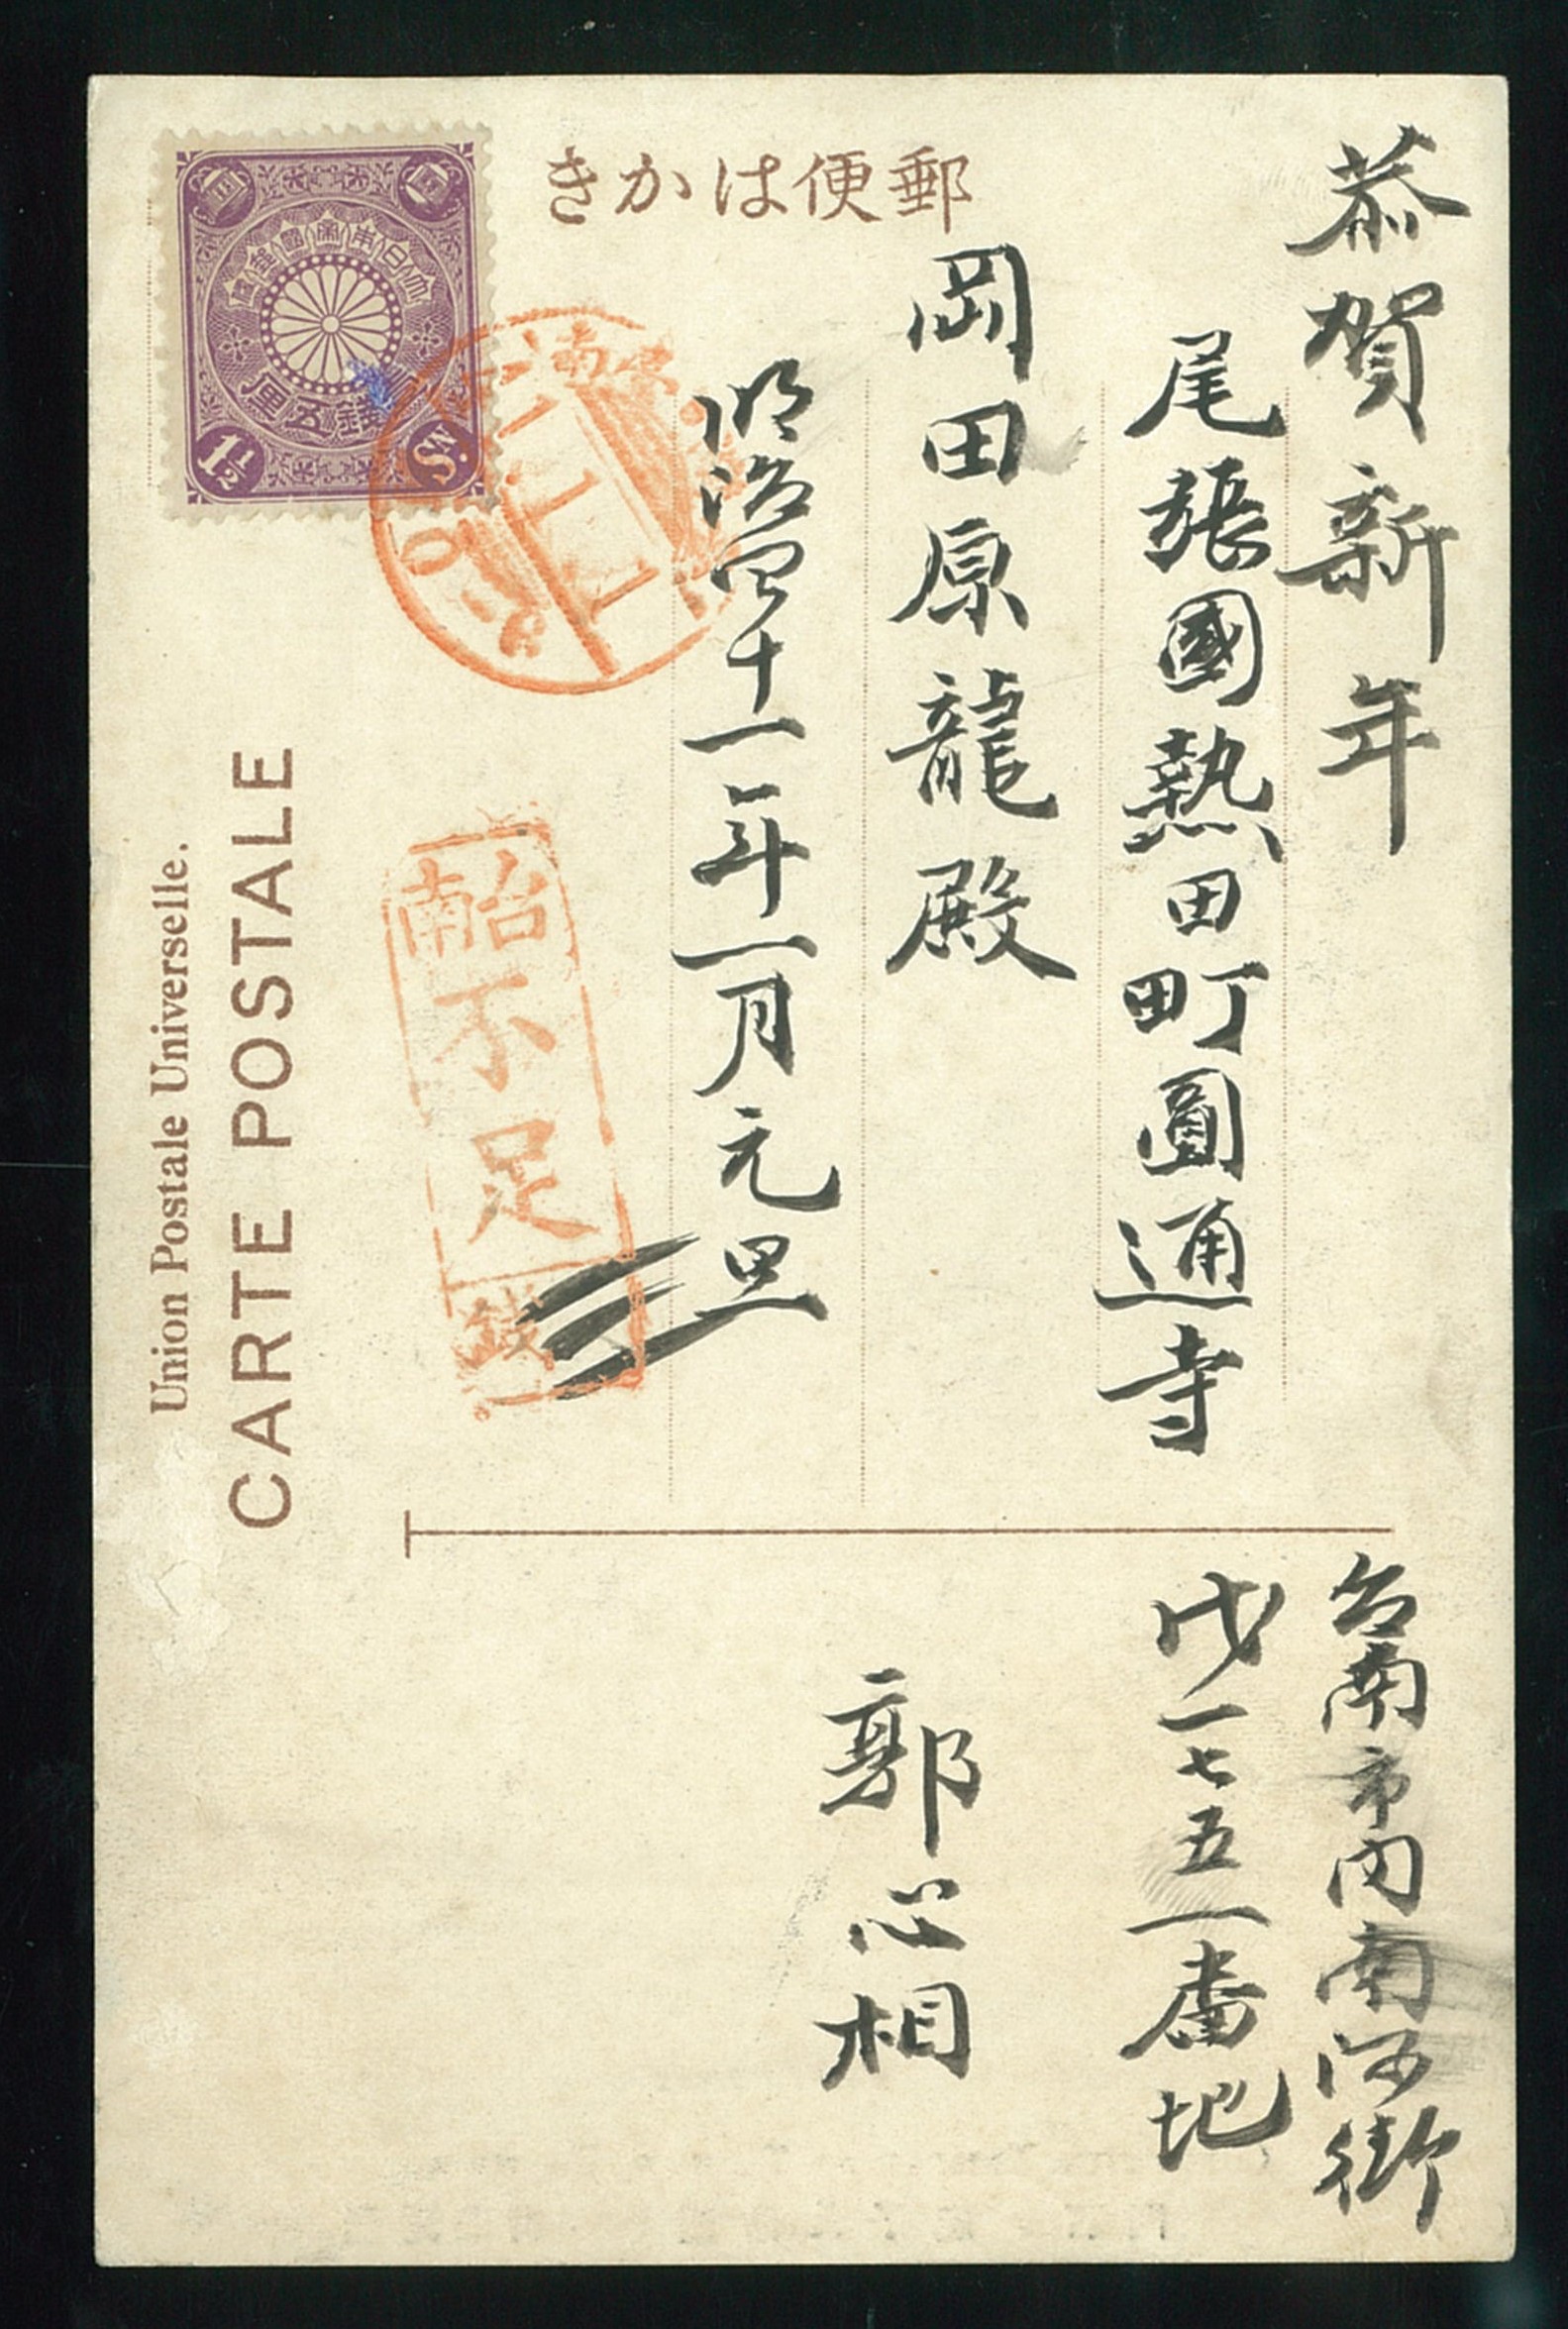 郵便はかき
恭賀新年
尾張國熱田町圓通寺
岡田原龍殿
明治四十一年一月元旦
台南市内南河街
戊一七五一番地
郭心相
台南
不足
銭
CARTE POSTALE
Union Postale Universelle.
大日本帝國郵便
壹錢五厘
1½
Sn.